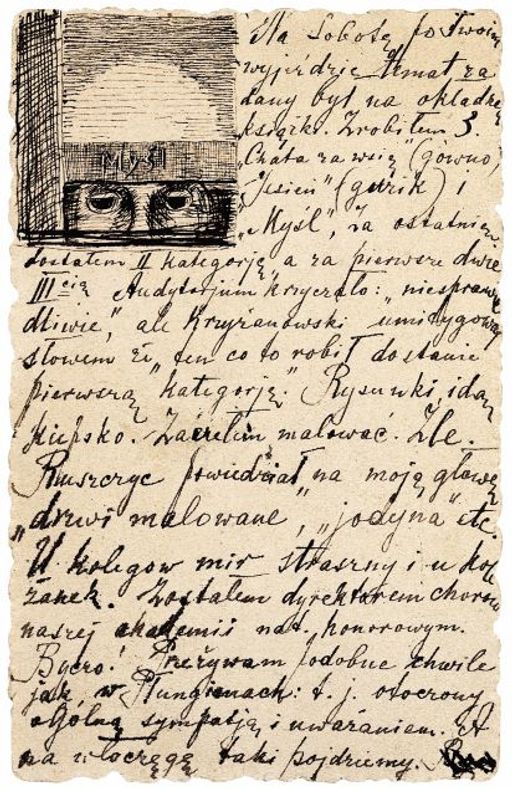 Na sobotę po Twoim
wyjeździe temat za
dany był na okładkę
książki. Zrobiłem 3.
"Chata za wsią" (gówno)
"Jesień" (gurik) i
"Myśl", Za ostatnią
Myśl
dostałem II kategorję a za pierwsze dwie
III cią Audytorjum krzyczało: "niespraw
dliwie", ale Krzyżanowski umitygował
słowem że "ten co to robił dostanie
pierwszą kategorję." Rysunki idą
kiepsko. Zacząłem malować. Źle.
Ruszczyc powiedział na moją głowę
"drzwi malowane", "jodyna" etc.
U kolegów mir straszny i u kole
żanek. Zostałem dyrektorem chóru
naszej akademii nat. honorowym.
Byczo! Przeżywam podobne chwile
jak w Płungianach: t. j. otoczony
ogólną sympatją i uważaniem. A
na włóczęgę taki pojdziemy.